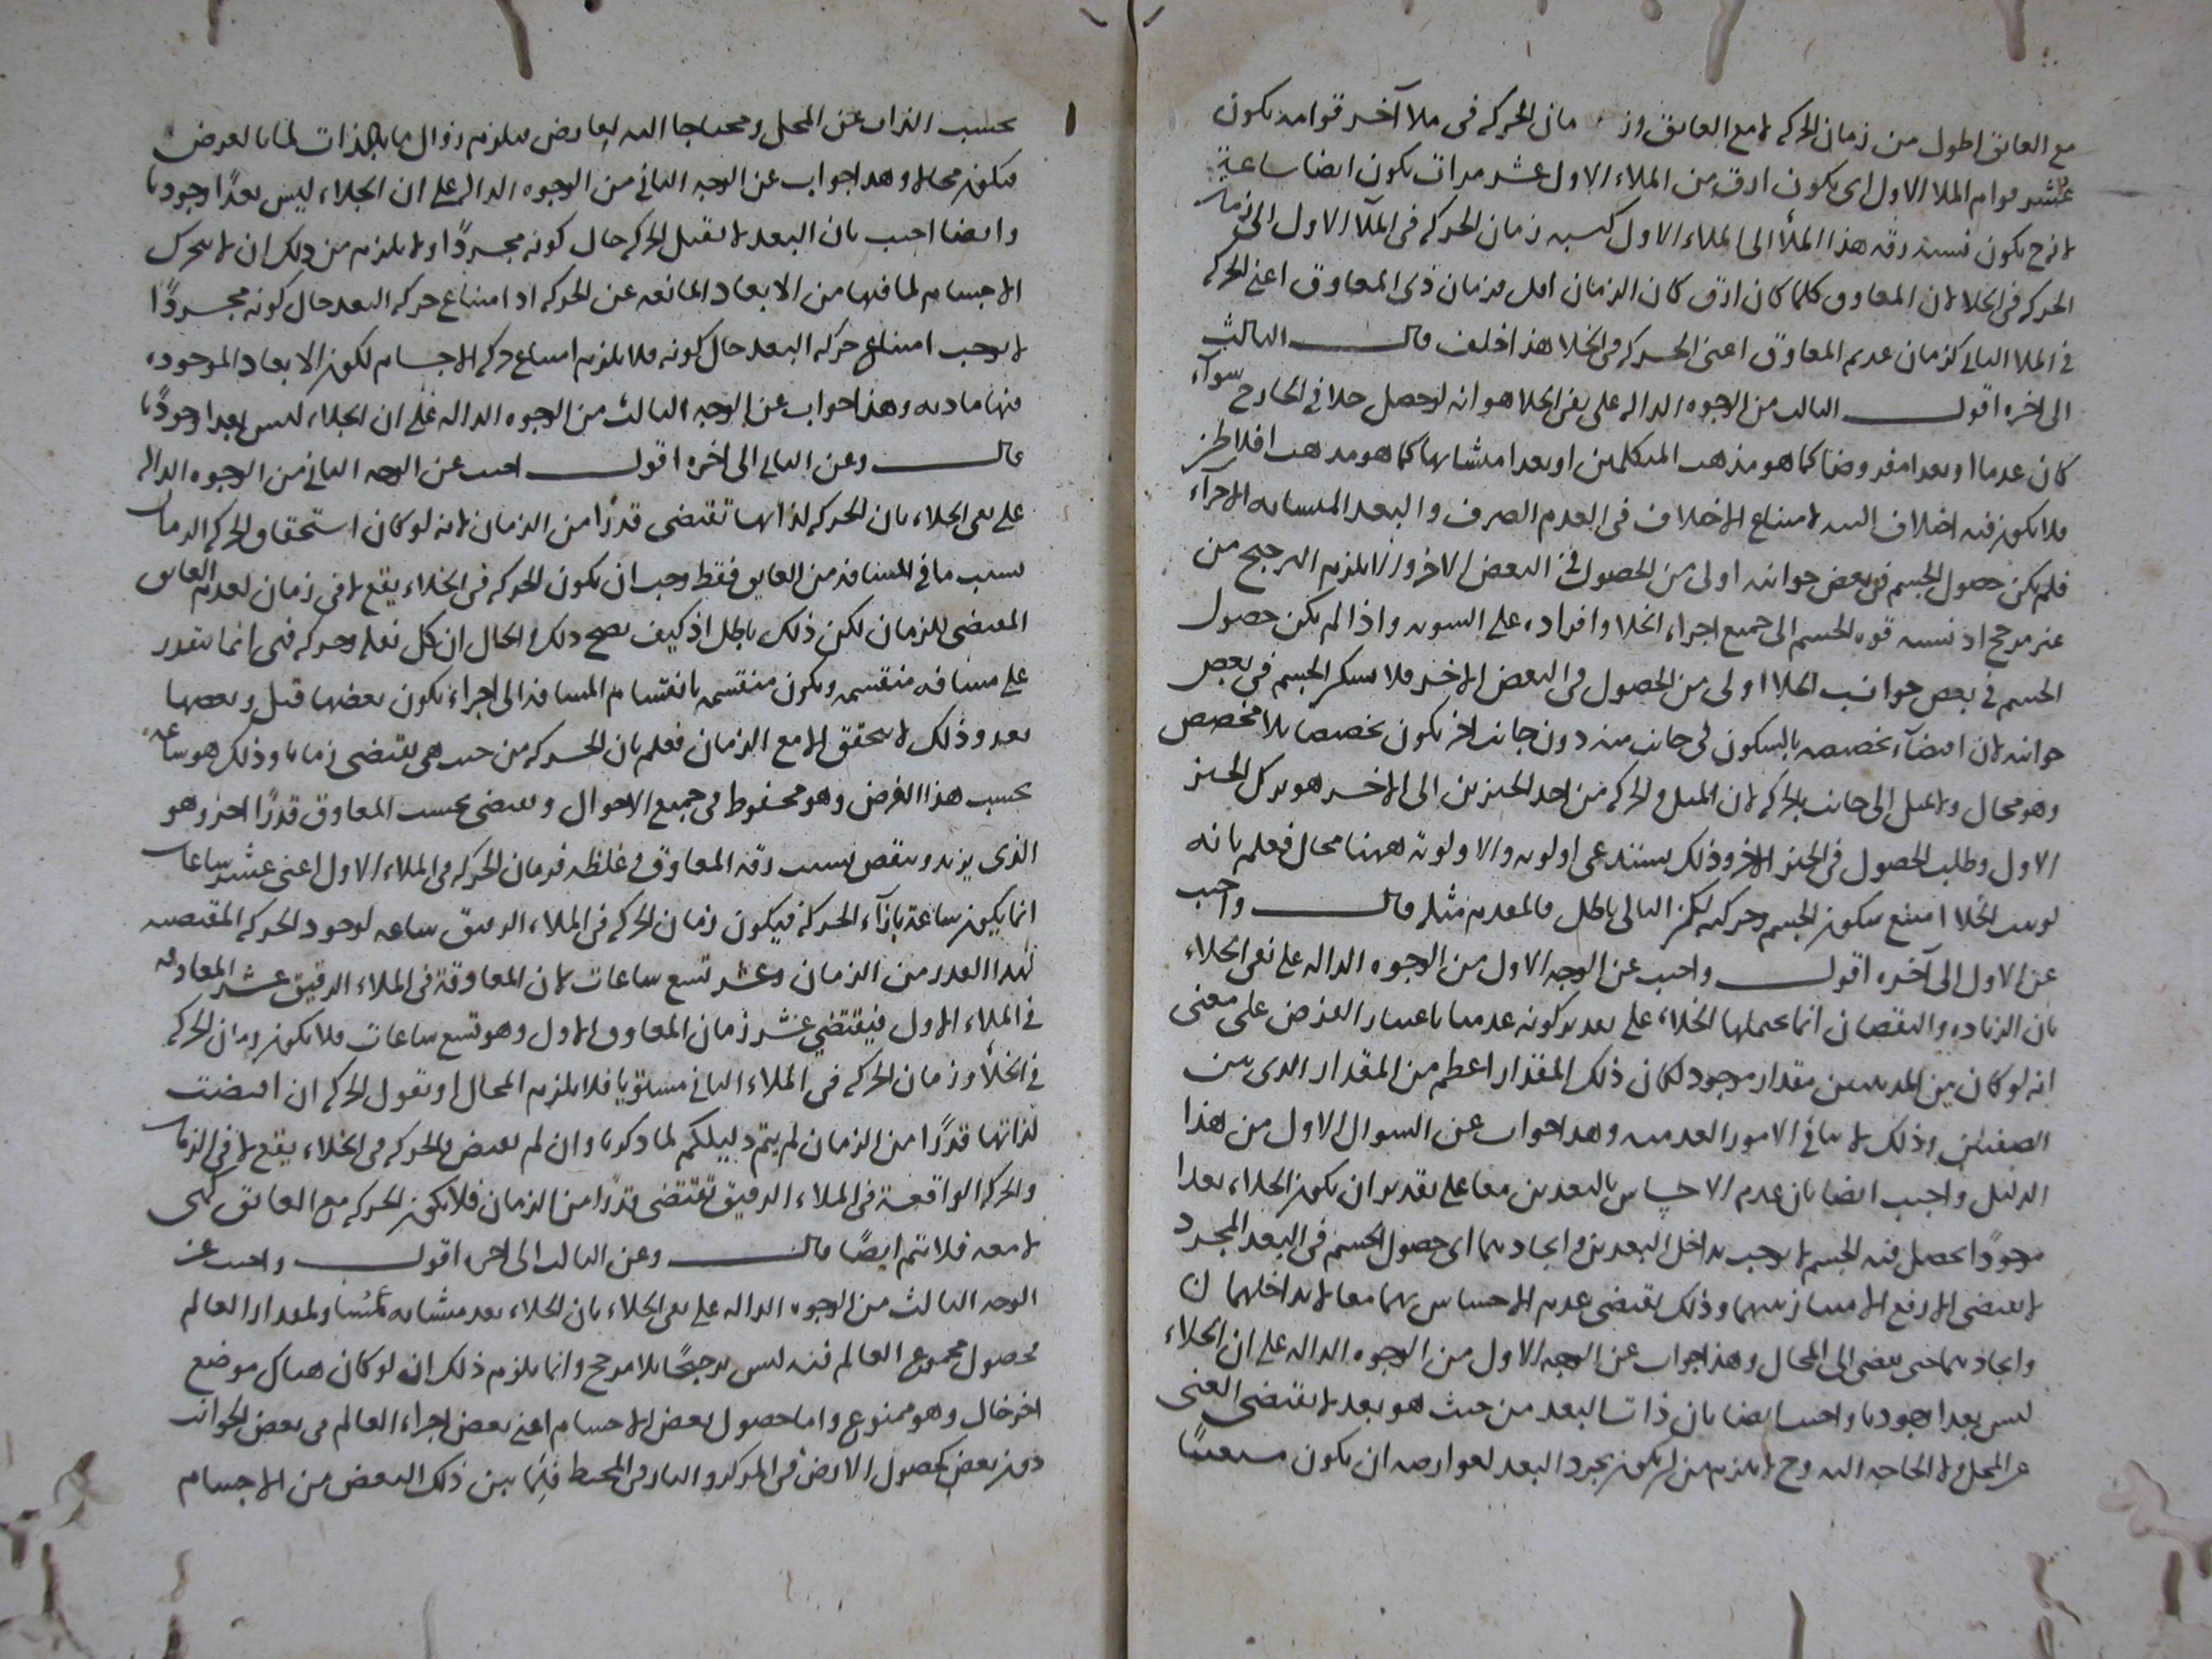 مع العائق اطول من زمان الحركه لا مع العائق وزمان الحركه فى ملا آخر قوامه يكون
عشر قوام الملا الاول اى يكون ارق من الملاء الاول عشر مرات يكون ايضا ساعة
لانه ح يكون نسبة رقه هذا الملأ الى الملاء الاول كنسبه زمان الحركه فى الملآ الاول الى زمان
الحركه فى الخلا لان المعاوق كلما كان ارق كان الزمان اقل فزمان ذى المعاوق اعنى الحركه
فى الملا الثانى كزمان عديم المعاوق اعنى الحركه فى الخلا هذا خلف قال الثالث
الى اخره اقول الثالث من الوجوه الداله على نفى الخلا هو انه لو حصل خلا فى الخارج سوآء
كان عدما او بعدا مفروضا كما هو مذهب المتكلمين او بعدا متشابها كما هو مذهب افلاطن
فلا يكون فيه اختلاف البته لامتناع الاختلاف فى العدم الصرف والبعد المتشابه الاجزآء
فلم يكن حصول الجسم فى بعض جوانبه اولى من الحصول فى البعض الاخر والا لزم الترجيح من
غير مرجح اذ نسبه قوه الجسم الى جميع اجزاء الخلا وافراده على السويه واذا لم يكن حصول
الجسم فى بعض جوانب الخلا اولى من الحصول فى البعض الاخر فلا يسكن الجسم فى بعض
جوانبه لان اقتضآء تخصيصه بالسكون فى جانب منه دون جانب اخر يكون تخصيصا بلا مخصص
وهو محال ولا يميل الى جانب بالحركه لان الميل والحركه من احد الحيزين الى الاخر هو ترك الحيز
الاول وطلب الحصول فى الحيز الاخر وذلك يستدعى اولويه والاولويه ههنا محال فعلم بانه
لو ثبت الخلا امتنع سكون الجسم وحركته لكن التالى باطل فالمقدم مثله قال واجيب
عن الاول الى آخره اقول واجيب عن الوجه الاول من الوجوه الداله على نفى الخلاء
بان الزياده والنقصان انما يحملها الخلاء على تقدير كونه عدميا باعتبار الفرض على معنى
انه لو كان بين المدينتين مقدار موجود لكان ذلك المقدار اعظم من المقدار الذى بين
الصفتين وذلك لا ينافى الامور العدميه وهذا جواب عن السوال الاول من هذا
الدليل واجيب ايضا بان عدم الاحساس بالبعدين معا على تقدير ان يكون الخلاء بعدا
موجودًا يحصل فيه الجسم لا يوجب تداخل البعدين واتحادهما اى حصول الجسم فى البعد المجرد
لا يقتضى الا رفع الامتياز بينهما وذلك يقتضى عدم الاحساس بهما معا لا تداخلهما
واتحادهما حتى يفضى الى المحال وهذا جواب عن الوجه الاول من الوجوه الداله على ان الخلاء
ليس بعدا وجوديا واجيب ايضا بان ذات البعد من حيث هو بعد لا يقتضى الغنى
عن المحل ولا الحاجه اليه وح لا يلزم من ان يكون تجرد البعد لعوارضه ان يكون مستغنيًا
بحسب الذات عن المحل ومحتاجا اليه لعارض فيلزم زوال ما بالذات لما بالعرض
فيكون محالا وهذا جواب عن الوجه الثانى من الوجوه الداله على ان الخلاء ليس بعدًا وجوديا
وايضا اجيب بان البعد لا يقبل الحركه حال كونه مجردًا ولا يلزم من ذلك ان لا يتحرك
الاجسام لما فيها من الابعاد المانعه عن الحركه اذ امتناع حركه البعد حال كونه مجردًا
لا يوجب امتناع حركه البعد حال كونه فلا يلزم امتناع حركه الاجسام لكون الابعاد الموجوده
فيها ماديه وهذا جواب عن الوجه الثالث من الوجوه الداله على ان الخلاء ليس بعدا وجوديا
قال وعن الثانى الى اخره اقول اجيب عن الوجه الثانى من الوجوه الداله
على نفى الخلاء بان الحركه لذاتها تقتضى قدرًا من الزمان لانه لو كان استحقاق الحركه الزمان
بسبب ما فى المسافه من العايق فقط وجب ان يكون الحركه فى الخلاء يقع لا فى زمان لعدم العايق
المقتضى للزمان لكن ذلك باطل اذ كيف يصح ذلك والحال ان كل نقله وحركه فهى انما تتقدر
على مسافه منقسمه ويكون منقسمه بانقسام المسافه الى اجزاء يكون بعضها قبل وبعضها
بعد وذلك لا يتحقق الا مع الزمان فعلم بان الحركه من حيث هى تقتضى زمانا وذلك هو ساعه
بحسب هذا الفرض وهو محفوظ فى جميع الاحوال ويقتضى بحسب المعاوق قدرًا اخر وهو
الذى يزيد وينقص بسبب رقه المعاوق وغلظه فزمان الحركه فى الملاء الاول اعنى عشر ساعات
انما يكون ساعة بازآء الحركة فيكون زمان الحركه فى الملاء الرقيق ساعه لوجود الحركه المقتضيه
لهذا القدر من الزمان وعشر تسع ساعات لان المعاوقة فى الملاء الرقيق عشر المعاوقه
فى الملاء الاول فيقتضى عشر زمان المعاوق الاول وهو تسع ساعات فلا يكون زمان الحركه
فى الخلأ وزمان الحركه فى الملاء الثانى مستويا فلا يلزم المحال او نقول الحركه ان اقتضت
لذاتها قدرًا من الزمان لم يتم دليلكم لما ذكرنا وان لم تقتض فالحركه فى الخلاء يقع لا فى الزمان
والحركه الواقعة فى الملاء الرقيق تقتضى قدرًا من الزمان فلا يكون الحركه مع العائق كهى
لا معه فلا يتم ايضًا قال وعن الثالث الى اخره اقول واجيب عن
الوجه الثالث من الوجوه الداله على نفى الخلاء بان الخلاء بعد متشابه مساو لمقدار العالم
فحصول مجموع العالم فيه ليس ترجيحًا بلا مرجح وانما يلزم ذلك ان لو كان هناك موضع
اخر خال وهو ممنوع واما حصول بعض الاجسام اعنى بعض اجزاء العالم فى بعض الجوانب
دون بعض كحصول الارض فى المركز والنار فى المحيط فلما بين ذلك البعض من الاجسام